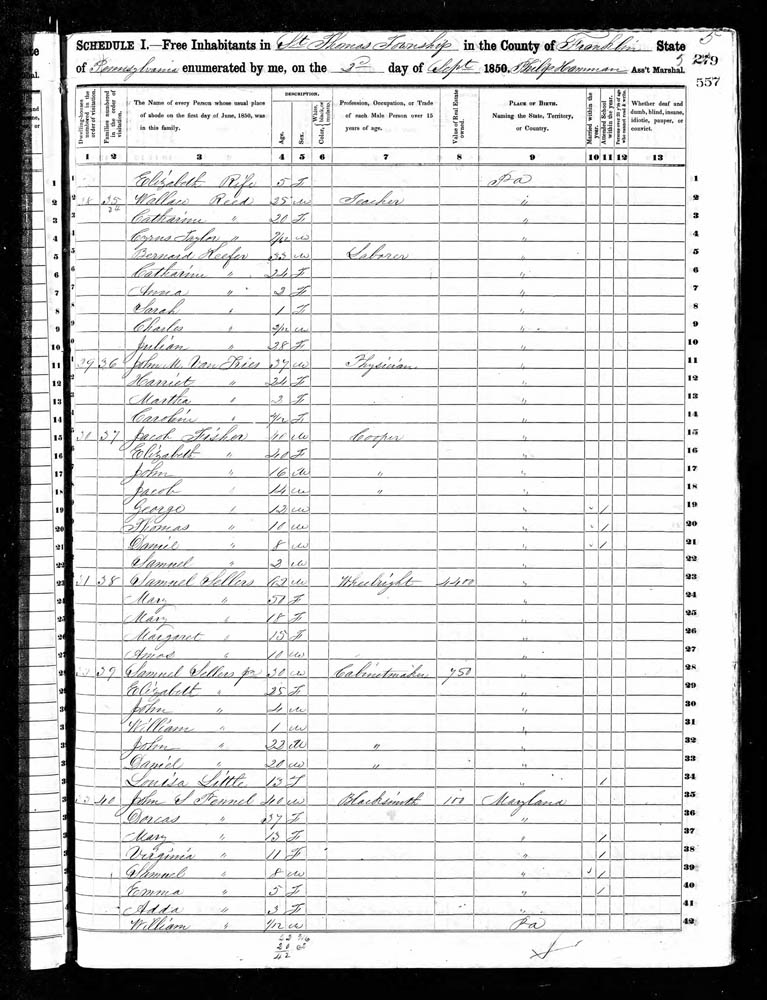 5
SCHEDULE I.—Free Inhabitants in St Thomas Township in the County of Franklin State
5 279
of Pennsylvania enumerated by me, on the 2d day of Sept 1850. Philip Hamman Ass't Marshal.
557
Dwelling-houses numbered in the order of visitation.
Families numbered in the order of visitation.
The Name of every Person whose usual place of abode on the first day of June, 1850, was in this family.
DESCRIPTION.
Age.
Sex.
White, black, or mulatto. Color,
Profession, Occupation, or Trade of each Male Person over 15 years of age.
Value of Real Estate owned.
PLACE OF BIRTH. Naming the State, Territory, or Country.
Married within the year.
Attended School within the year.
Persons over 20 y'rs of age who cannot read & write.
Whether deaf and dumb, blind, insane, idiotic, pauper, or convict.
1 2 3 4 5 6 7 8 9 10 11 12 13
1 Elizabeth Rife 5 F Pa 1
2 35 Wallace Reed 25 m Teacher " 2
3 Catharine " 20 F " 3
4 Cyrus Taylor " m " 4
5 Bernard Keefer 33 m Laborer " 5
6 Catharine " 24 F " 6
7 Anna " 2 F " 7
8 Sarah " 1 F " 8
9 Charles " 2/12 m " 9
10 Julian " 28 F " 10
11 29 36 John M Van Tries 37 m Physician " 11
12 Harriet " 24 F " 12
13 Martha " F " 13
14 Carolin " F " 14
15 30 37 Jacob Fisher 40 m Cooper " 15
16 Elizabeth " 40 F " 16
17 John " 16 m " " 17
18 Jacob " 14 m " " 18
19 George " 12 m " 1 19
20 Thomas " 10 m " 1 20
21 Daniel " 8 m " 1 21
22 Samuel " 2 m " 22
23 31 38 Samuel Sellers m Wheelright 4400 " 23
24 Mary " 51 F " 24
25 Mary " 18 F " 25
26 Margaret " 15 F " 26
27 Amos " 10 m " 27
28 39 Samuel Sellers jr 30 m Cabinetmaker 750 " 28
29 Elizabeth " 25 F " 29
30 John " 4 m " 30
31 William " 1 m " 31
32 John " 22 m " " 32
33 Daniel " 20 m " " 33
34 Louisa Little 13 F " 1 34
35 33 40 John S Fennel 40 m Blacksmith 100 Maryland 35
36 Dorcas " 37 F " 36
37 Mary " 13 F " 1 37
38 Virginia " 11 F " 1 38
39 Samuel " 8 m " 1 39
40 Emma " 5 F " 1 40
41 Adda " 3 F " 41
42 William " m Pa 42
22
20
42